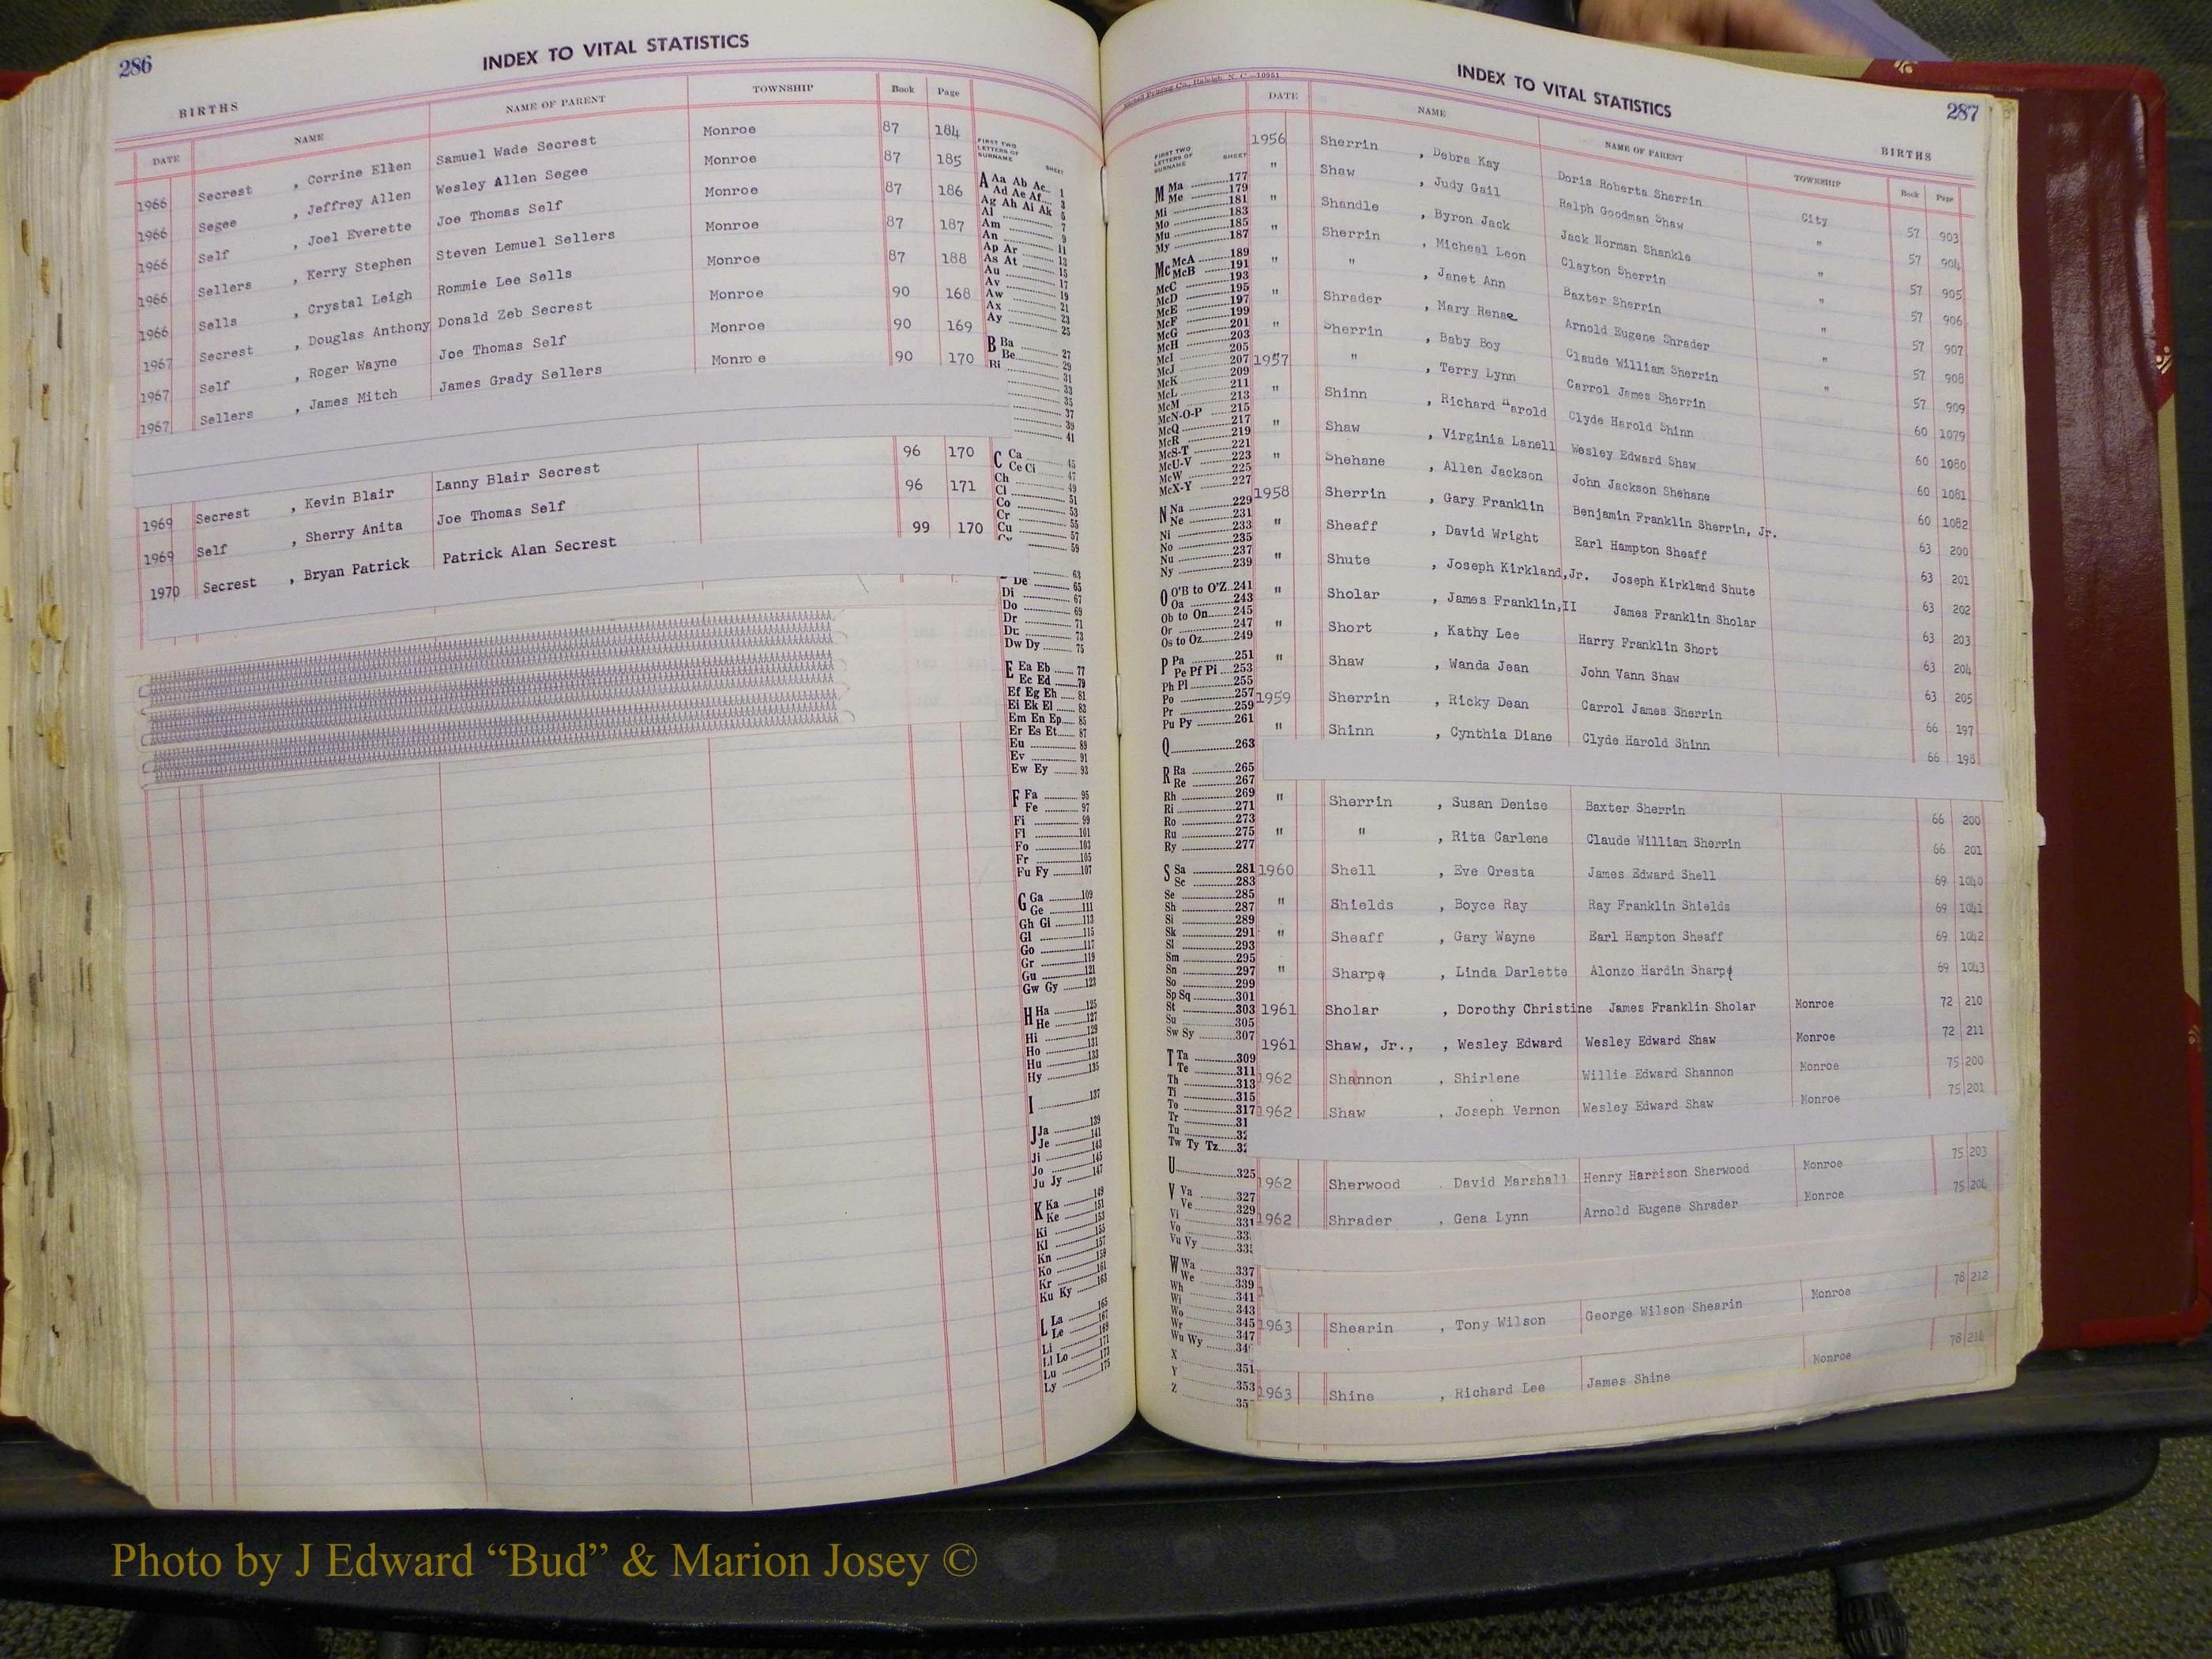 286
INDEX TO VITAL STATISTICS
BIRTHS
DATE NAME NAME OF PARENT TOWNSHIP Book Page
1966 Secrest , Corrine Ellen Samuel Wade Secrest Monroe 87 184
1966 Segee , Jeffrey Allen Wesley Allen Segee Monroe 87 185
1966 Self , Joel Everette Joe Thomas Self Monroe 87 186
1966 Sellers , Kerry Stephen Steven Lemuel Sellers Monroe 87 187
1966 Sells , Crystal Leigh Rommie Lee Sells Monroe 87 188
1967 Secrest , Douglas Anthony Donald Zeb Secrest Monroe 90 168
1967 Self , Roger Wayne Joe Thomas Self Monroe 90 169
1967 Sellers , James Mitch James Grady Sellers Monro e 90 170
1969 Secrest , Kevin Blair Lanny Blair Secrest 96 170
1969 Self , Sherry Anita Joe Thomas Self 96 171
1970 Secrest , Bryan Patrick Patrick Alan Secrest 99 170
FIRST TWO
LETTERS OF
SURNAME SHEET
A Aa Ab Ac 1
Ad Ae Af 3
Ag Ah Ai Ak 5
Al 7
Am 9
An 11
Ap Ar 13
As At 15
Au 17
Av 19
Aw 21
Ax 23
Ay 25
B Ba 27
Be 29
Bi 31
33
35
37
39
41
C Ca 45
Ce Ci 47
Ch 49
Cl 51
Co 53
Cr 55
Cu 57
59
63
De 65
Di 67
Do 69
Dr 71
Du 73
Dw Dy 75
E Ea Eb 77
Ec Ed 79
Ef Eg Eh 81
Ei Ek El 83
Em En Ep 85
Er Es Et 87
Eu 89
Ev 91
Ew Ey 93
F Fa 95
Fe 97
Fi 99
Fl 101
Fo 103
Fr 105
Fu Fy 107
G Ga 109
Ge 111
Gh Gi 113
Gl 115
Go 117
Gr 119
Gu 121
Gw Gy 123
H Ha 125
He 127
Hi 129
Ho 131
Hu 133
Hy 135
I 137
J Ja 139
Je 141
Ji 143
Jo 145
Ju Jy 147
K Ka 149
Ke 151
Ki 153
Kl 155
Kn 157
Ko 159
Kr 161
Ku Ky 163
L La 165
Le 167
Li 169
Ll Lo 171
Lu 173
Ly 175
INDEX TO VITAL STATISTICS
287
BIRTHS
Printing Co., Raleigh, N. C.—10951
DATE NAME NAME OF PARENT TOWNSHIP Book Page
1956 Sherrin , Debra Kay Doris Roberta Sherrin City 57 903
" Shaw , Judy Gail Ralph Goodman Shaw " 57 904
" Shandle , Byron Jack Jack Norman Shankle " 57 905
" Sherrin , Micheal Leon Clayton Sherrin " 57 906
" " , Janet Ann Baxter Sherrin " 57 907
" Shrader , Mary Renae Arnold Eugene Shrader " 57 908
" Sherrin , Baby Boy Claude William Sherrin " 57 909
1957 " , Terry Lynn Carrol James Sherrin 60 1079
" Shinn , Richard Harold Clyde Harold Shinn 60 1080
" Shaw , Virginia Lanell Wesley Edward Shaw 60 1081
" Shehane , Allen Jackson John Jackson Shehane 60 1082
1958 Sherrin , Gary Franklin Benjamin Franklin Sherrin, Jr. 63 200
" Sheaff , David Wright Earl Hampton Sheaff 63 201
" Shute , Joseph Kirkland,Jr. Joseph Kirkland Shute 63 202
" Sholar , James Franklin,II James Franklin Sholar 63 203
" Short , Kathy Lee Harry Franklin Short 63 204
" Shaw , Wanda Jean John Vann Shaw 63 205
1959 Sherrin , Ricky Dean Carrol James Sherrin 66 197
" Shinn , Cynthia Diane Clyde Harold Shinn 66 198
" Sherrin , Susan Denise Baxter Sherrin 66 200
" " , Rita Carlene Claude William Sherrin 66 201
1960 Shell , Eve Oresta James Edward Shell 69 1040
" Shields , Boyce Ray Ray Franklin Shields 69 1041
" Sheaff , Gary Wayne Earl Hampton Sheaff 69 1042
" Sharpe , Linda Darlette Alonzo Hardin Sharpe 69 1043
1961 Sholar , Dorothy Christine James Franklin Sholar Monroe 72 210
1961 Shaw, Jr., , Wesley Edward Wesley Edward Shaw Monroe 72 211
1962 Shannon , Shirlene Willie Edward Shannon Monroe 75 200
1962 Shaw , Joseph Vernon Wesley Edward Shaw Monroe 75 201
1962 Sherwood . David Marshall Henry Harrison Sherwood Monroe 75 203
1962 Shrader , Gena Lynn Arnold Eugene Shrader Monroe 75 204
1963 Shearin , Tony Wilson George Wilson Shearin Monroe 78 212
1963 Shine , Richard Lee James Shine Monroe 78 214
FIRST TWO
LETTERS OF
SURNAME SHEET
M Ma 177
Me 179
Mi 181
Mo 183
Mu 185
My 187
Mc McA 189
McB 191
McC 193
McD 195
McE 197
McF 199
McG 201
McH 203
McI 205
McJ 207
McK 209
McL 211
McM 213
McN-O-P 215
McQ 217
McR 219
McS-T 221
McU-V 223
McW 225
McX-Y 227
N Na 229
Ne 231
Ni 233
No 235
Nu 237
Ny 239
O O'B to O'Z 241
Oa 243
Ob to On 245
Or 247
Os to Oz 249
P Pa 251
Pe Pf Pi 253
Ph Pl 255
Po 257
Pr 259
Pu Py 261
Q 263
R Ra 265
Re 267
Rh 269
Ri 271
Ro 273
Ru 275
Ry 277
S Sa 281
Sc 283
Se 285
Sh 287
Si 289
Sk 291
Sl 293
Sm 295
Sn 297
So 299
Sp Sq 301
St 303
Su 305
Sw Sy 307
T Ta 309
Te 311
Th 313
Ti 315
To 317
Tr
Tu
Tw Ty Tz
U 325
V Va 327
Ve 329
Vi 331
Vo
Vu Vy
W Wa 337
We 339
Wh 341
Wi 343
Wo 345
Wr 347
Wu Wy
X 351
Y 353
Z
Photo by J Edward “Bud” & Marion Josey ©